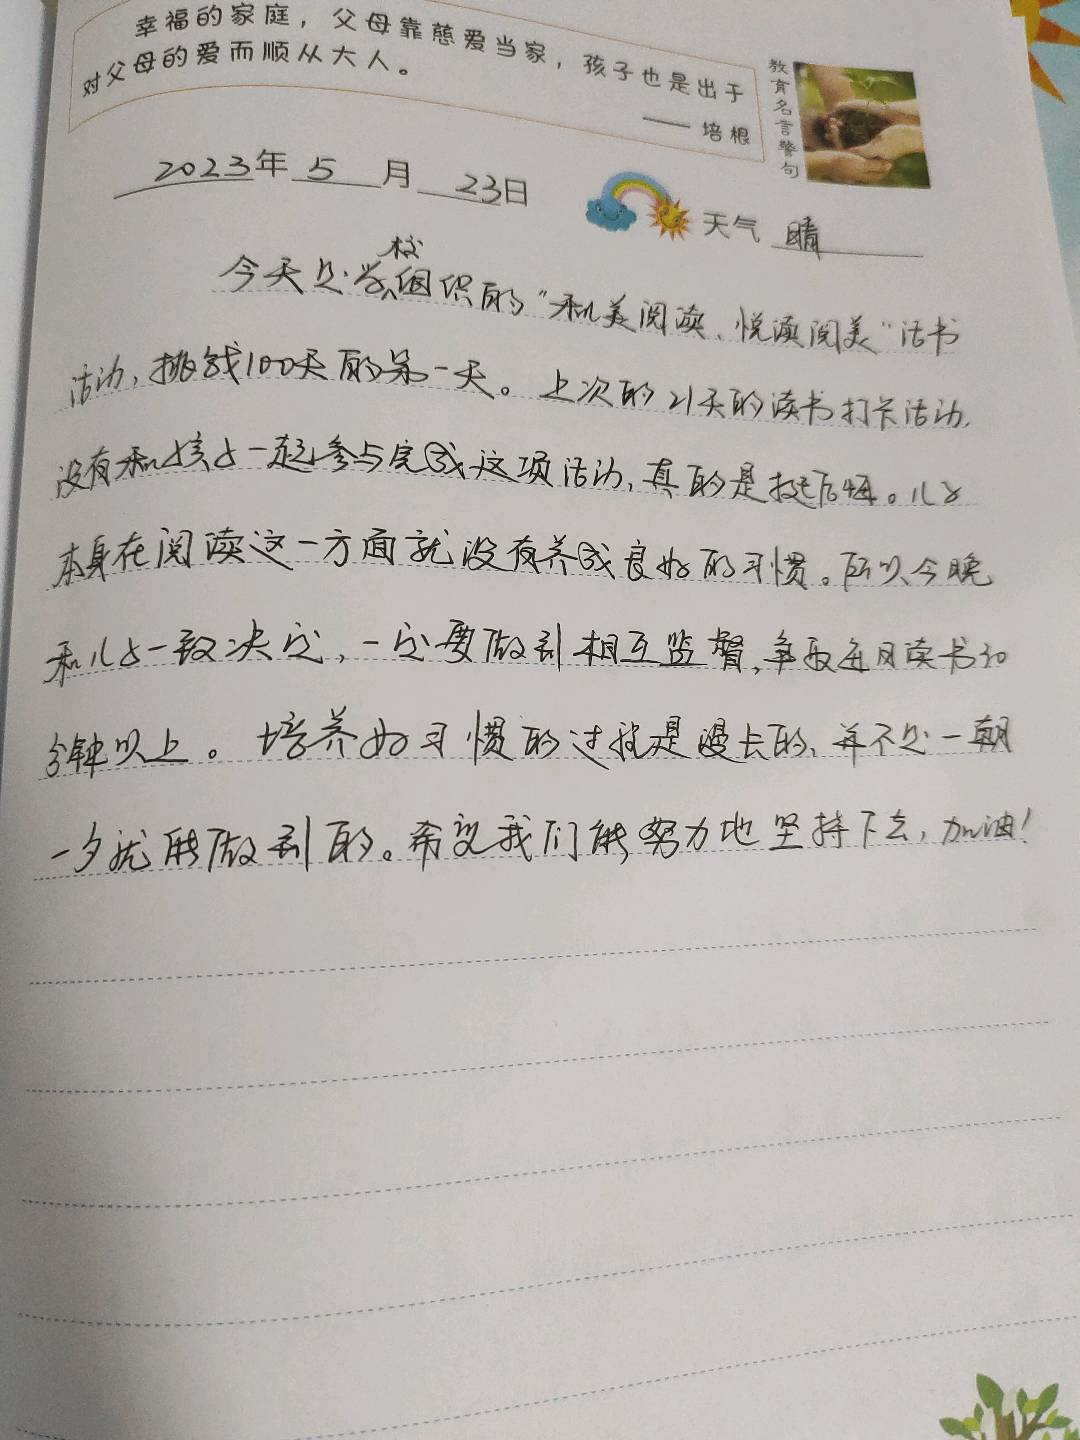 幸福的家庭，父母靠慈爱当家，孩子也是出于
对父母的爱而顺从大人。
—— 培根
教育名言警句
2023年 5 月 23日
天气 晴
今天是学校组织的“和美阅读、悦读阅美”活书
活动，挑战100天的第一天。上次的21天的读书打卡活动，
没有和孩子一起参与完成这项活动，真的是挺后悔。儿子
本身在阅读这一方面就没有养成良好的习惯。所以今晚
和儿子一致决定，一定要做到相互监督，争取每日读书30
分钟以上。培养好习惯的过程是漫长的，并不是一朝
一夕就能做到的。希望我们能努力地坚持下去，加油！